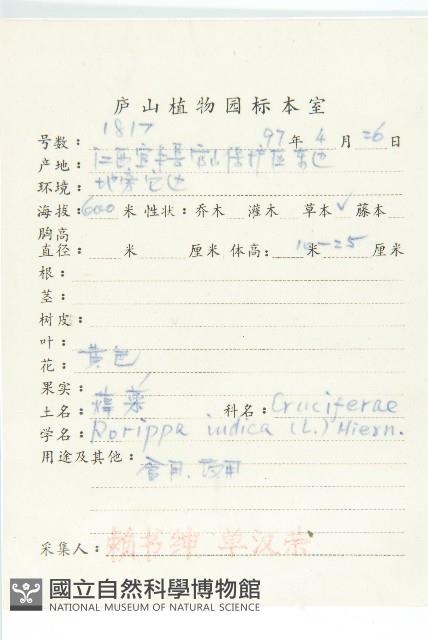 庐山植物园标本室
号数: 1817 97年4月26日
产地: 江西宜丰县官山保护区东边
环境: 地旁
海拔: 600米 性状: 乔木 灌木 草本✓ 藤本
胸高
直径: 米 厘米 体高: 10-25 米 厘米
根:
茎:
树皮:
叶:
花: 黄色
果实:
土名: 蔊菜 科名: Cruciferae
学名: Rorippa indica (L.) Hiern.
用途及其他: 食用、药用
采集人: 赖书绅 单汉荣
國立自然科學博物館
NATIONAL MUSEUM OF NATURAL SCIENCE